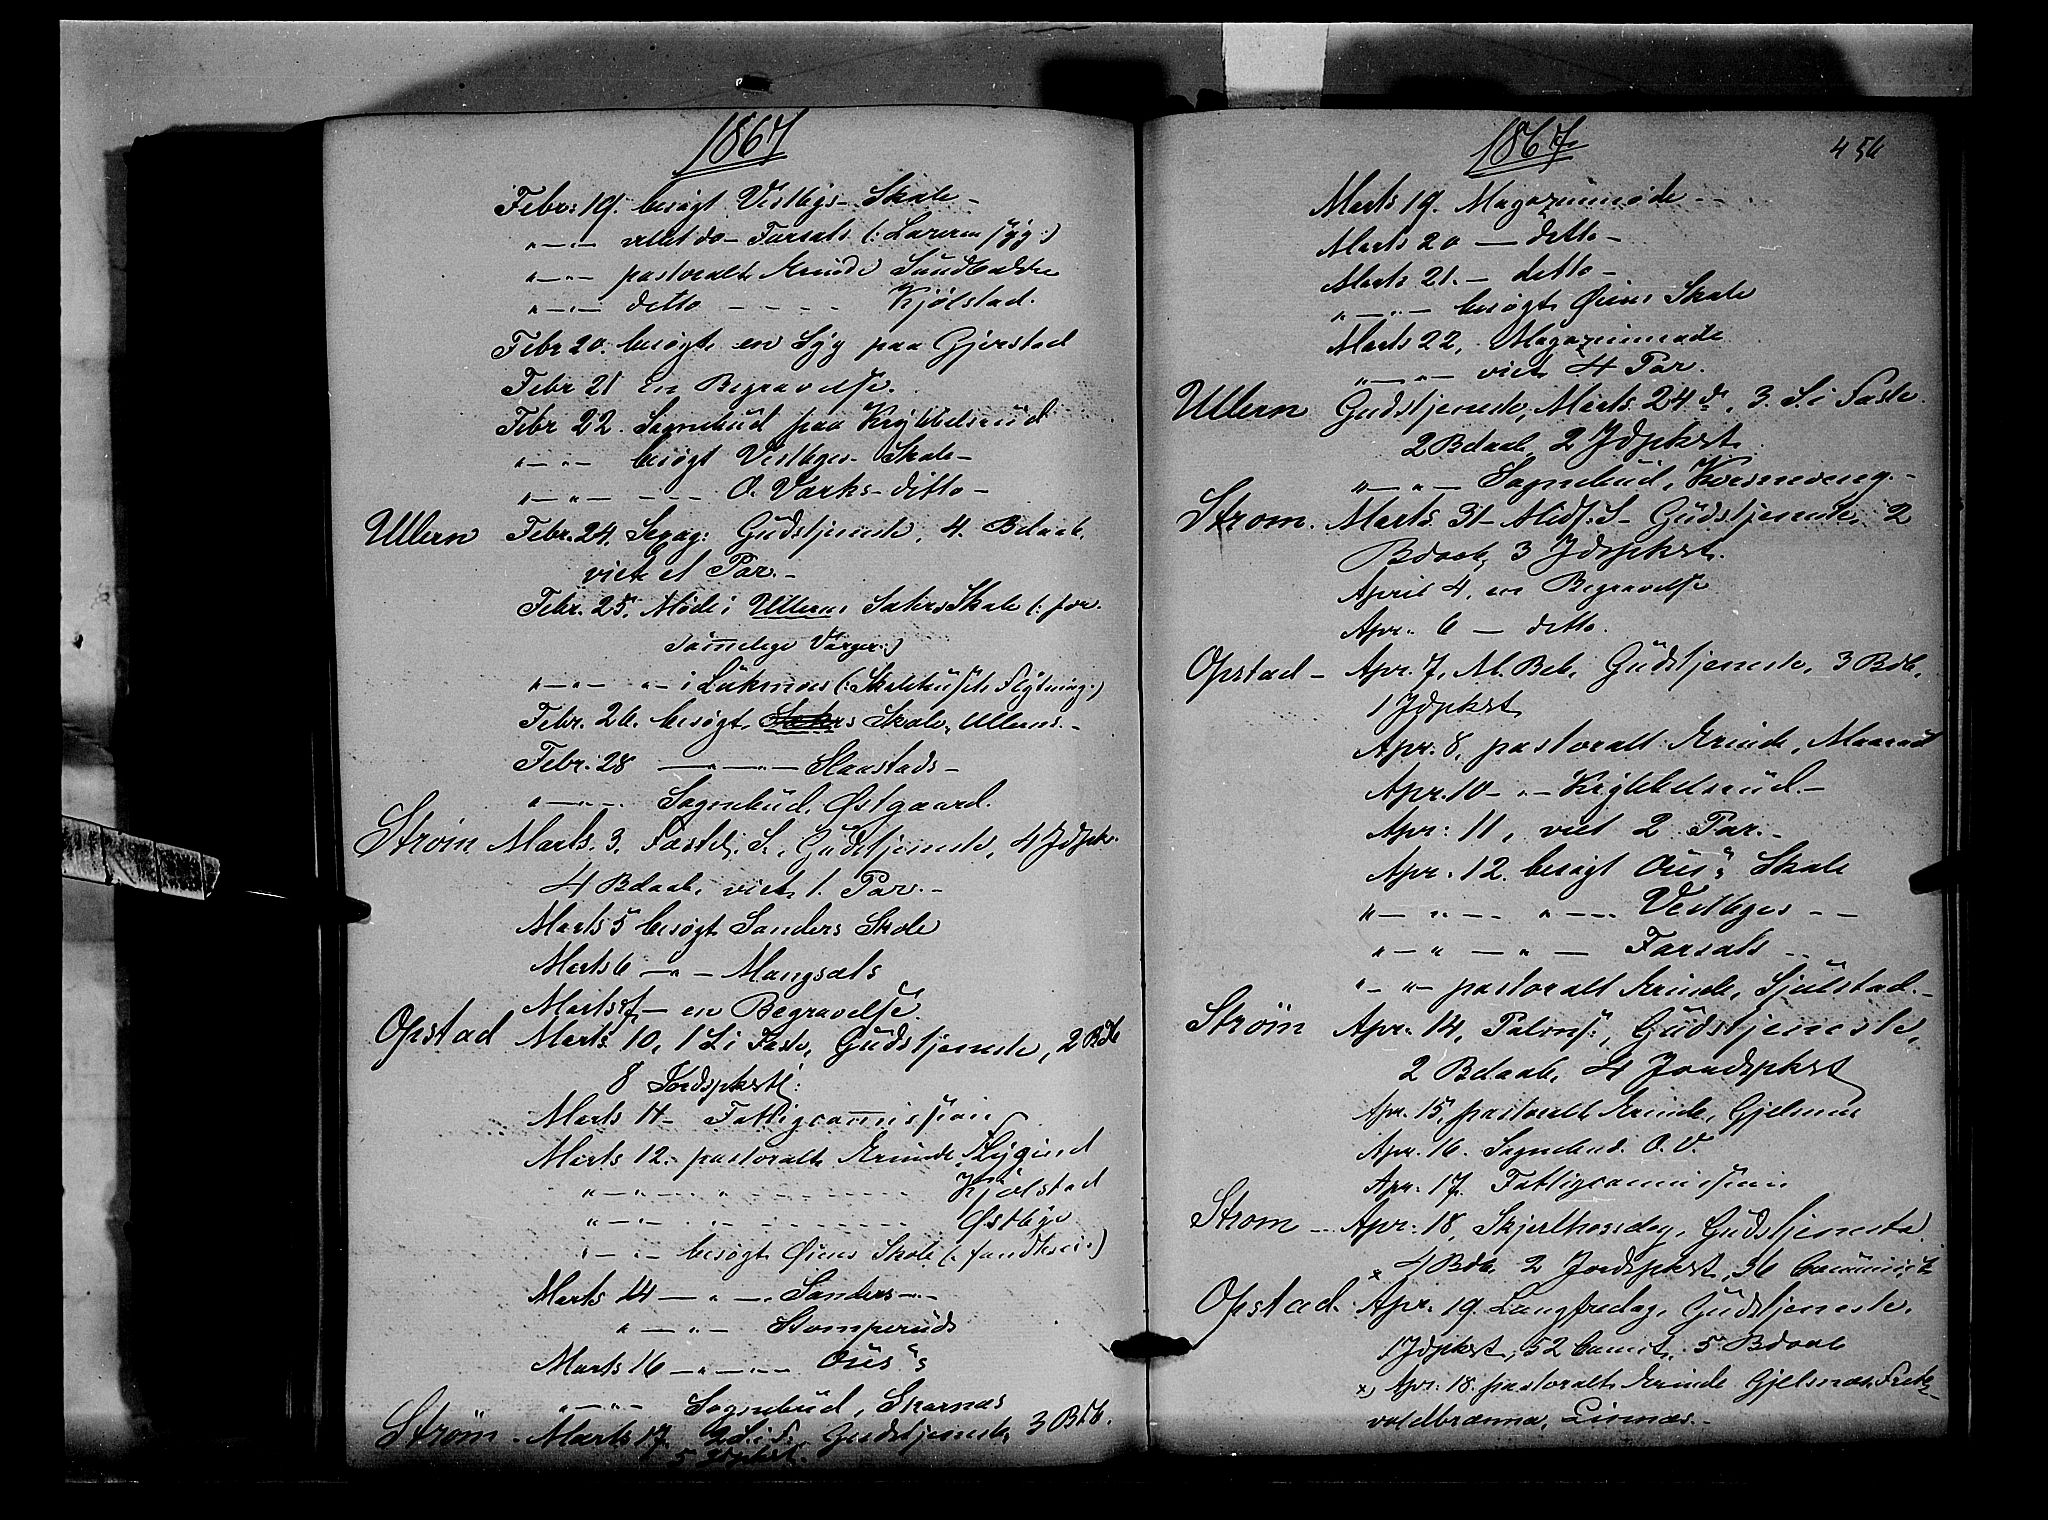 1867
Febr: 19. besøgt Vestbys Skole -
" — " — vilet do - Forsøts (: Læreren syg :)
" — " — pastoralt Ærinde
" — " — ditto - - - - Kjølstad.
Febr 20. besøgt en Syg paa Gjerstad
Febr 21 en Begravelse.
Febr 22. Sognebud paa Krybbelsrud
" — " — besøgt Vestbyes - Skole -
" — " — - - - O. Værks - ditto -
Ullern Febr. 24. Sexag: Gudstjeneste, 4. Bdaab,
viet et Par. -
Febr. 25. Møde i Ullerns Skole (: for
samtlige Værger :)
" — " — " — i Luknæs (: Skolehusets Flytning :)
Febr. 26. besøgt Skole, Ullerns. -
Febr. 28 — " — " — Slaastads -
" — " — Sognebud, Østgaard.
Strøm Marts. 3. Fastel. S., Gudstjeneste, 4 Jdpk.
4 Bdaab, viet 1. Par. -
Marts 5 besøgt Sanders Skole
Marts 6 — " — Mangsæts
Marts 7 — en Begravelse.
Opstad Marts 10, 1 S. i Faste, Gudstjeneste, 2 Bdb
8 Jordspkst:
Marts 11 - Fattigcommission
Marts 12. pastoralt Ærinde,
" — " — " - - - - Kjølstad
" — " — " - - - - Østbye
" — " — besøgt Øiens Skole
Marts 14 — " — Sanders — " —
" — " — Stomperuds
Marts 16 — " — " — Ous"s
" — " — Sognebud, Skarnæs
Strøm - Marts 17. 2 S. i F. Gudstjeneste, 3 Bdb.
5 Jdpkst.
1867
456
Marts 19. Magazinmøde - -
Marts 20 — ditto -
Marts 21. - ditto -
" — " — besøgt Øiens Skole
Marts 22, Magazinmøde
" — " — viet 4 Par.
Ullern Gudstjeneste, Marts 24de, 3. S. i Faste.
2 Bdaab, 2 Jdpkst.
" — " — Sognebud, Kornmoeng. -
Strøm. Marts 31 - Midf: S - Gudstjeneste, 2
Bdaab, 3 Jdspkst.
April 4, en Begravelse
Apr. 6 — ditto.
Opstad - Apr. 7, M. Beb, Gudstjeneste, 3 Bdb,
1 Jdpkst
Apr. 8, pastoralt Ærinde, Maarud
Apr. 10 - " - Krybbelsrud. -
Apr: 11, viet 2 Par. -
Apr. 12. besøgt Ous"s Skole
" — " — " — " — Vestbyes - -
" — " — " — Forsøts - -
" - " - pastoralt Ærinde, Sjulstad. -
Strøm Apr. 14, Palmes:, Gudstjeneste,
2 Bdaab, 4 Jordspkst
Apr. 15, pastoralt Ærinde, Gjelsnæs
Apr. 16. Sognebud. O. V.
Apr. 17. Fattigcommission
Strøm - Apr. 18, Skjerthorsdag, Gudstjeneste
x 4 Bdb, 2 Jordspkst, 36 Communic.
Opstad. Apr. 19. Langfredag, Gudstjeneste.
1 Jdpkst, 52 Comct, 5 Bdaab
x) Apr: 18. pastoralt Ærinde Gjelsnæs,
voldbrænna, Linnæs. -